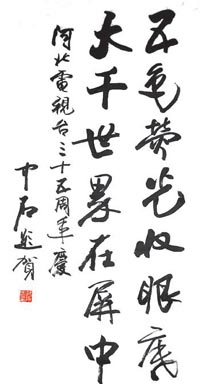 五色荧光收眼底
大千世界在屏中
河北電視台三十五周年慶
中石遥贺